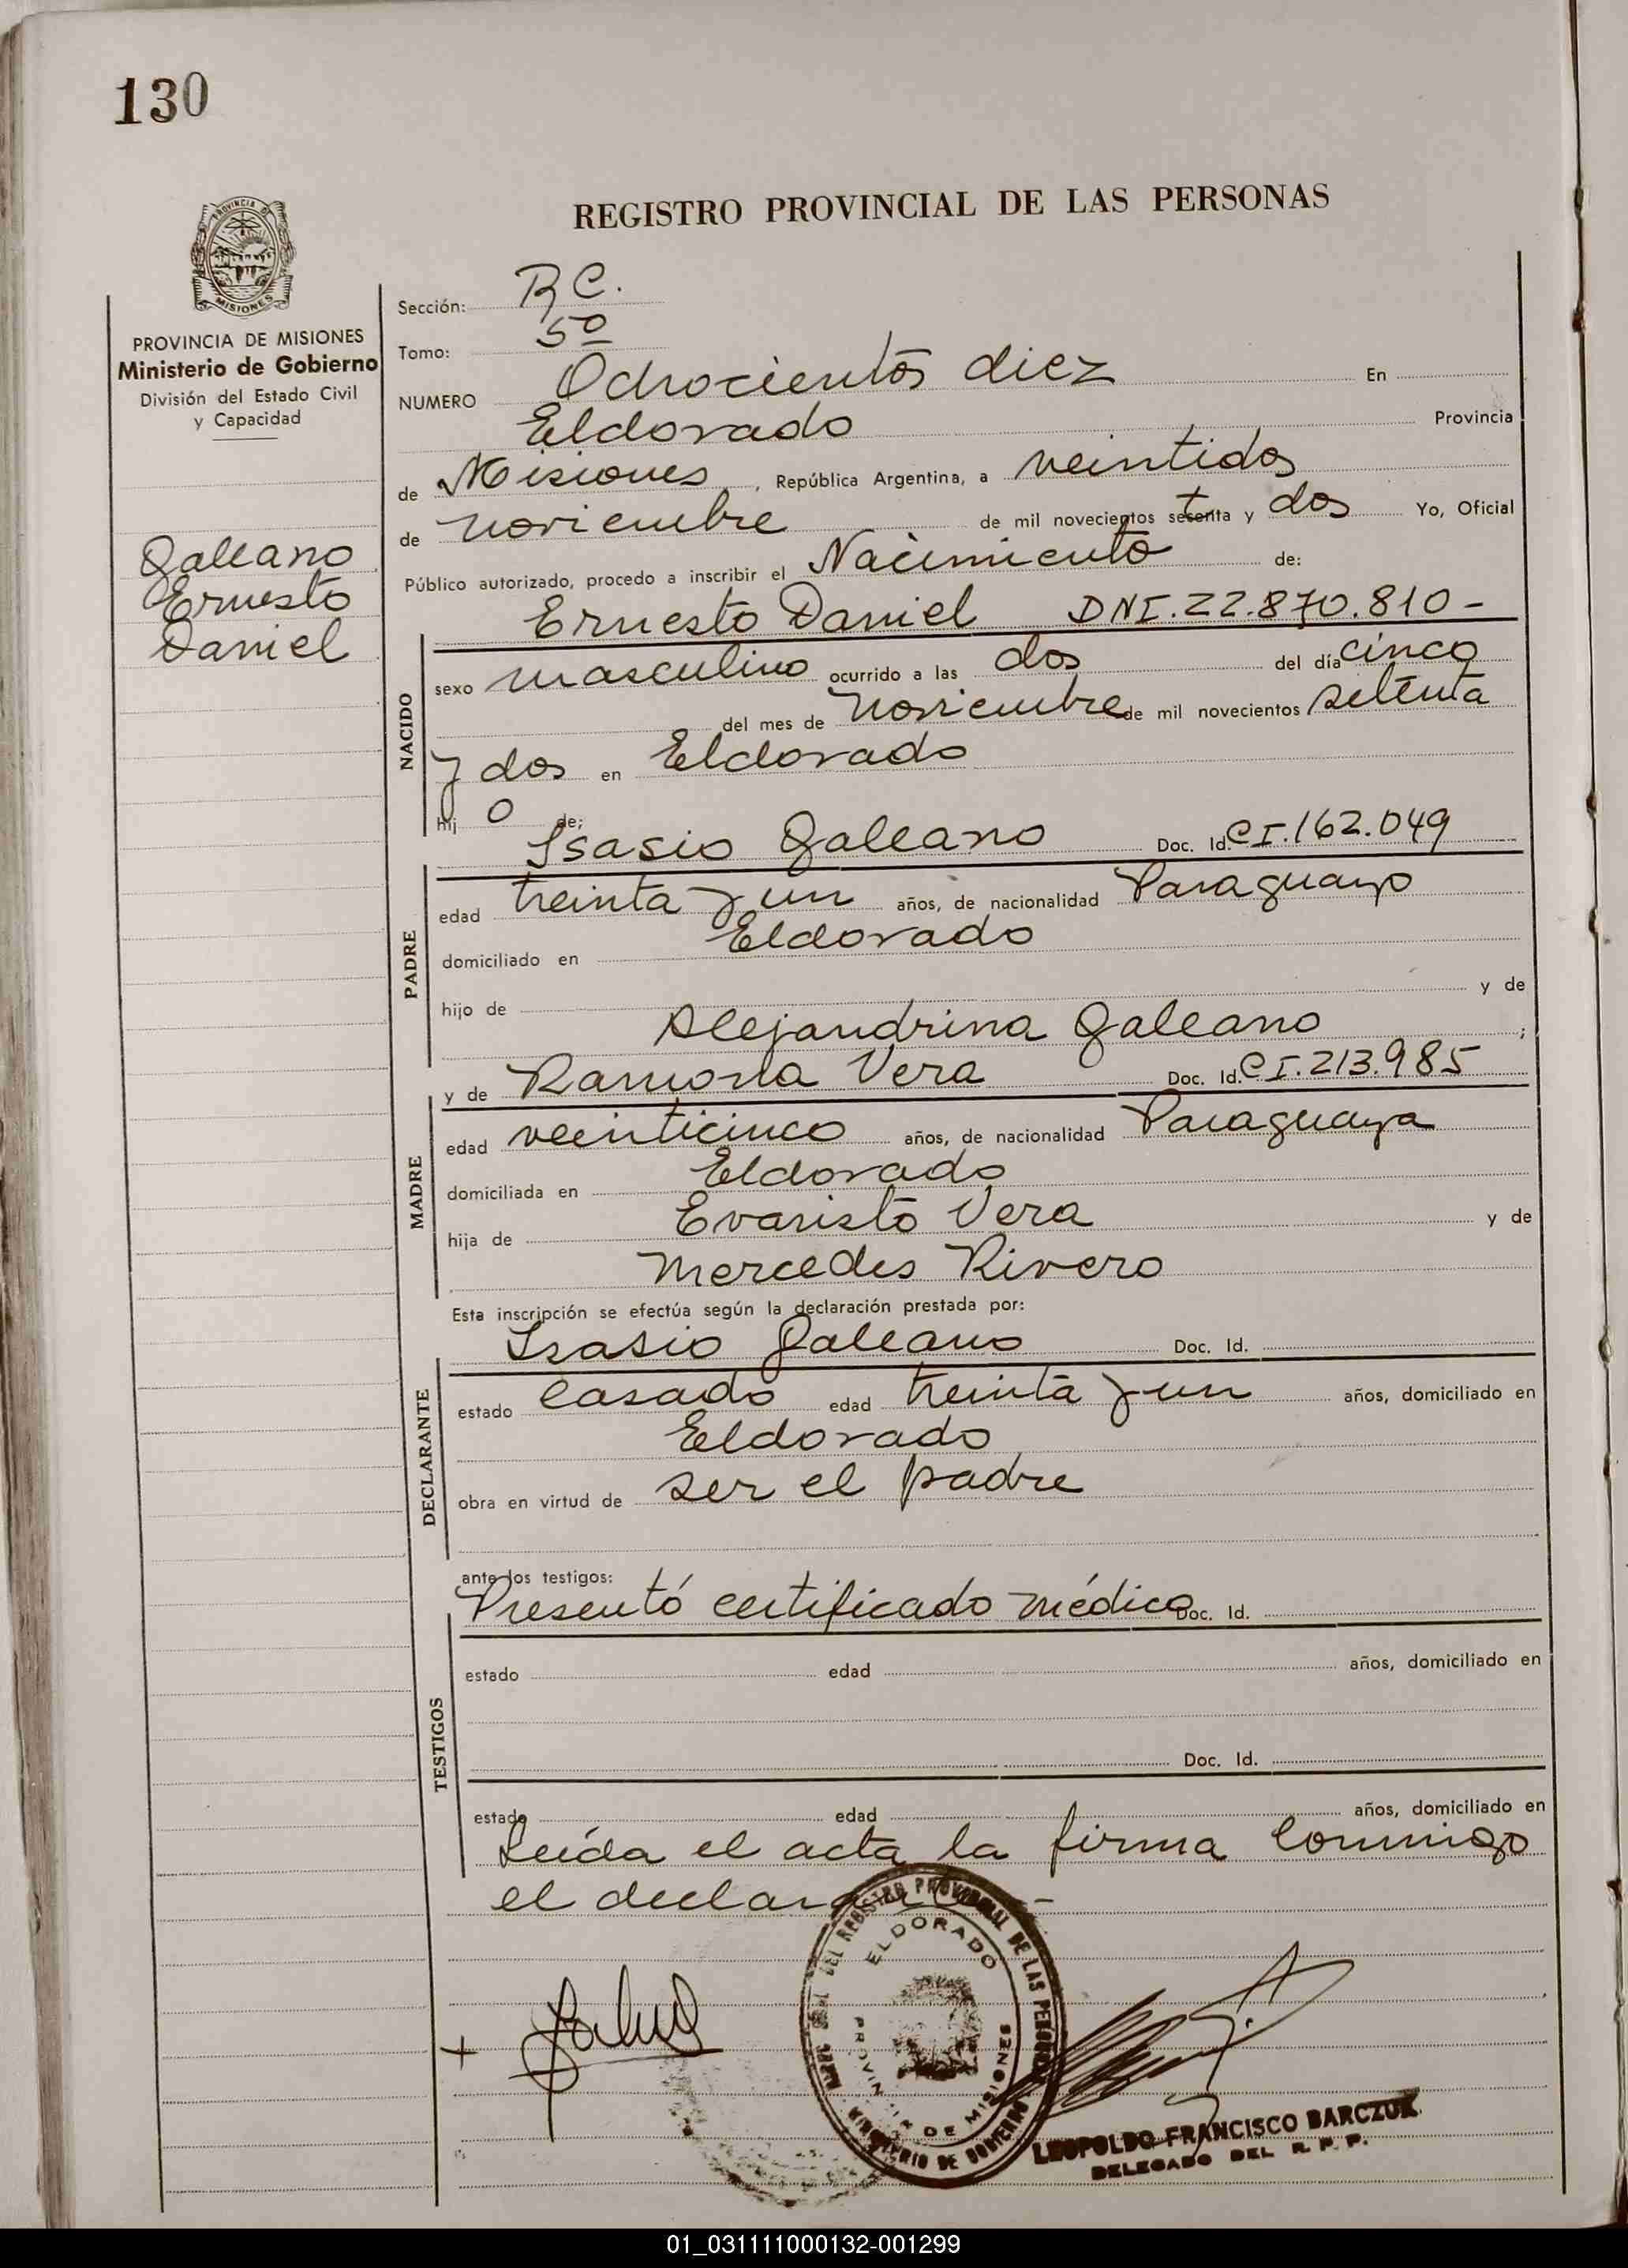 130
REGISTRO PROVINCIAL DE LAS PERSONAS
PROVINCIA DE MISIONES
PROVINCIA DE MISIONES
Ministerio de Gobierno
División del Estado Civil
y Capacidad
Galeano
Ernesto
Daniel
Sección: R C.
Tomo: 5º
NUMERO Ochocientos diez En
Eldorado Provincia
de Misiones, República Argentina, a veintidos
de noviembre de mil novecientos setenta y dos Yo, Oficial
Público autorizado, procedo a inscribir el Nacimiento de:
Ernesto Daniel DNI. 22.870.810-
NACIDO
sexo masculino ocurrido a las dos del día cinco
del mes de noviembre de mil novecientos setenta
y dos en Eldorado
hij o de;
Isasio Galeano Doc. Id. CI. 162.049
PADRE
edad treinta y un años, de nacionalidad Paraguayo
domiciliado en Eldorado
hijo de y de
Alejandrina Galeano ;
y de Ramona Vera Doc. Id. CI. 213.985
MADRE
edad veinticinco años, de nacionalidad Paraguaya
domiciliada en Eldorado
hija de Evaristo Vera y de
Mercedes Rivero
Esta inscripción se efectúa según la declaración prestada por:
Isasio Galeano Doc. Id.
DECLARANTE
estado Casado edad treinta y un años, domiciliado en
Eldorado
obra en virtud de ser el padre
ante los testigos:
Presentó certificado médico Doc. Id.
TESTIGOS
estado edad años, domiciliado en
Doc. Id.
estado edad años, domiciliado en
Leída el acta la firma conmigo
el declarante -
DEL REGISTRO PROVINCIAL DE LAS PERSONAS
ELDORADO
PROVINCIA DE MISIONES
MINISTERIO DE GOBIERNO
LEOPOLDO FRANCISCO BARCZUK
DELEGADO DEL R. P. P.
01_031111000132-001299